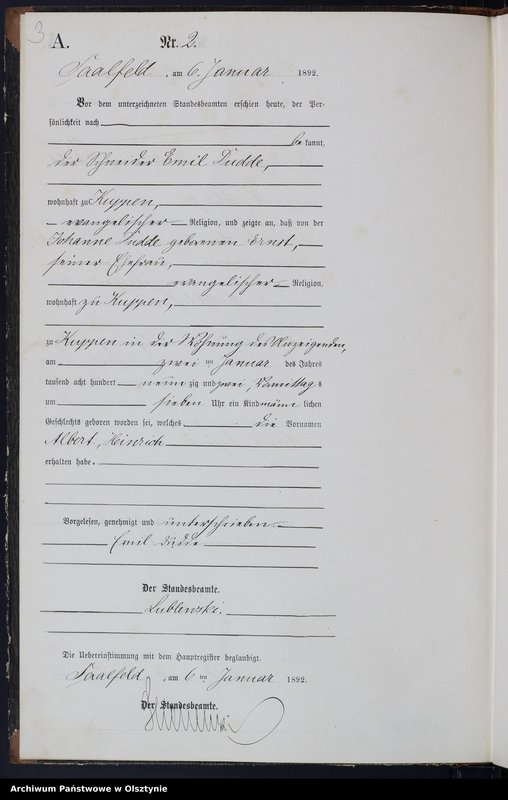 3
A. Nr. 2.
Saalfeld, am 6. Januar 1892.
Vor dem unterzeichneten Standesbeamten erschien heute, der Per-
sönlichkeit nach
be kannt,
der Schneider Emil Dudde,
wohnhaft zu Kuppen,
evangelischer Religion, und zeigte an, daß von der
Johanne Dudde geborenen Ernst,
seiner Ehefrau,
evangelischer Religion,
wohnhaft zu Kuppen,
zu Kuppen in der Wohnung des Anzeigenden,
am zwei ten Januar des Jahres
tausend acht hundert neun zig und zwei, Vormittags
um sieben Uhr ein Kind männ lichen
Geschlechts geboren worden sei, welches die Vornamen
Albert, Heinrich
erhalten habe.
Vorgelesen, genehmigt und unterschrieben.
Emil Dudde
Der Standesbeamte.
Lublewski.
Die Uebereinstimmung mit dem Hauptregister beglaubigt.
Saalfeld, am 6 ten Januar 1892.
Der Standesbeamte.
Archiwum Państwowe w Olsztynie